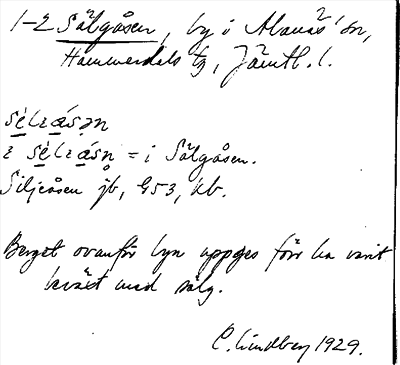 1-2 Sälgåsen, by i Alanäs sn,
Hammerdals tg, Jämtl. l.
sèlɩásən
ɩ sèlɩásn = i Sälgåsen.
Siljeåsen jb, G53, kb.
Berget ovanför byn uppges förr ha varit
beväxt med sälg.
C. Lindberg 1929.